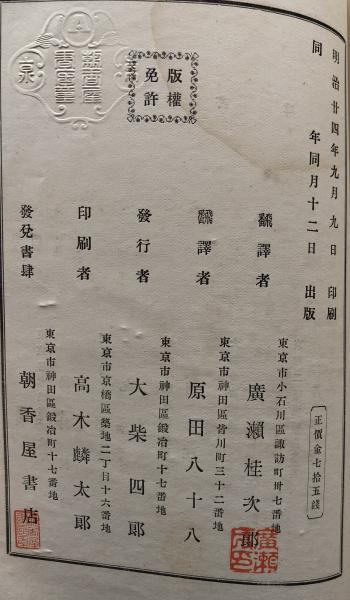 明治廿四年九月九日 印刷
同年同月十二日 出版
正價金七拾五錢
東京市小石川區諏訪町卅七番地
飜譯者 廣瀬桂次郎
東京市神田區皆川町三十二番地
飜譯者 原田八十八
東京市神田區鍛冶町十七番地
發行者 大柴四郎
東京市京橋區築地二丁目十六番地
印刷者 高木麟太郎
東京市神田區鍛冶町十七番地
發兌書肆 朝香屋書店
版權
免許